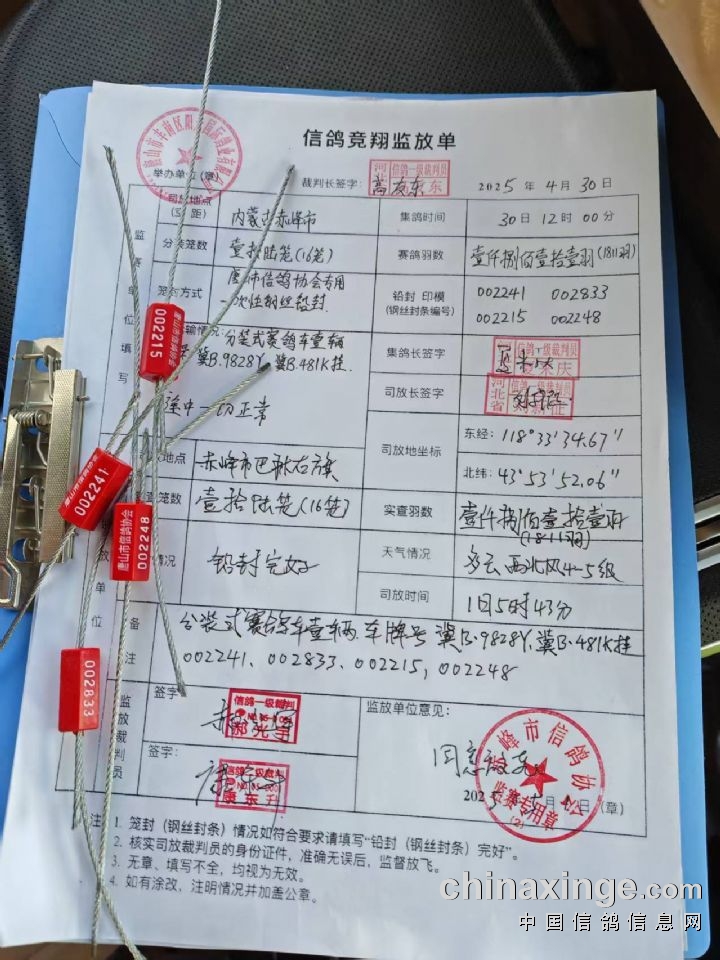 信鸽竞翔监放单
举办单位(章)
裁判长签字: 2025年4月30日
司放地点
(空距)
内蒙古赤峰市
集鸽时间
30日12时00分
分装笼数
壹拾陆笼(16笼)
赛鸽羽数
壹仟捌佰壹拾壹羽(1811羽)
唐山市信鸽协会专用
一次性钢丝铅封.
铅封 印模
(钢丝封条编号)
002241 002833
002215 002248
监赛单位填写
输情况:
分装式赛鸽车壹辆
冀B.9828Y. 冀B.481K挂.
途中一切正常
集鸽长签字
信鸽一级裁判员
司放长签字
河北省
信鸽一级裁判员
司放地坐标
东经: 118°33′34.67″
北纬: 43°53′52.06″
地点
赤峰市巴林右旗
笼数
壹拾陆笼(16笼)
实查羽数
壹仟捌佰壹拾壹羽
(1811羽)
情况
铅封完好
天气情况
多云西北风4-5级
司放时间
1日5时43分
放单位
备注
分装式赛鸽车壹辆 车牌号 冀B.9828Y. 冀B.481K挂
002241、002833、002215、002248
监放裁判员
签字
信鸽一级裁判
郝光宇
签字:
信鸽一级裁判
康东升
监放单位意见:
同意放飞
赤峰市信鸽协会
监赛专用章
(2)
(章)
注
1. 笼封(钢丝封条)情况如符合要求请填写“铅封(钢丝封条)完好”。
2. 核实司放裁判员的身份证件,准确无误后,监督放飞。
3. 无章、填写不全,均视为无效。
4. 如有涂改,注明情况并加盖公章。
唐山市信鸽协会
002215
唐山市信鸽协会
002241
唐山市信鸽协会
002248
002833
chinaxinge.com
中国信鸽信息网